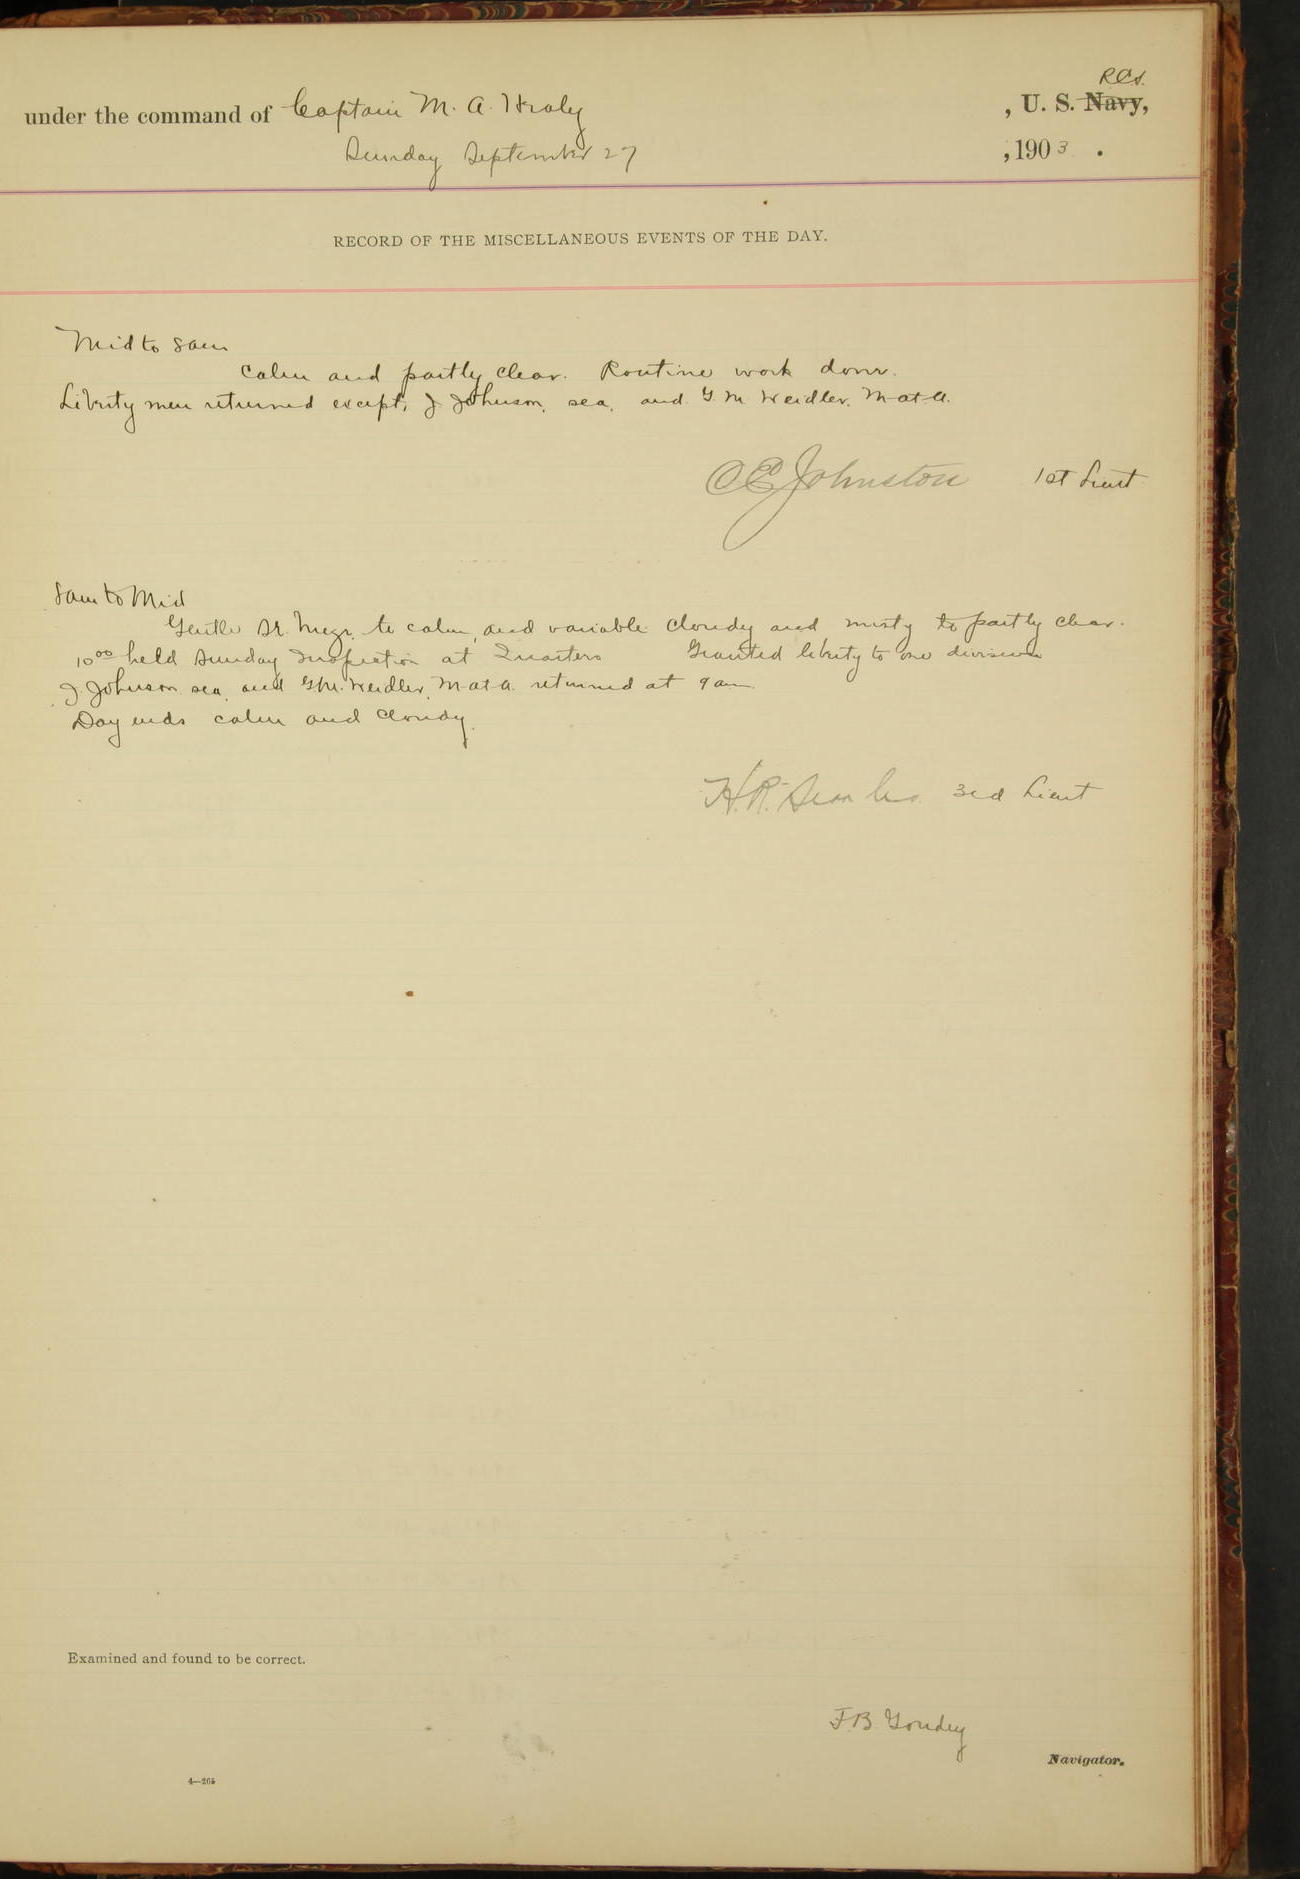 RCS.
under the command of Captain M. A. Healy , U. S. Navy,
Sunday September 27 , 1903 .
RECORD OF THE MISCELLANEOUS EVENTS OF THE DAY.
Mid to 8am
Calm and partly clear. Routine work done.
Liberty men returned except, J Johnson, sea, and G. M. Weidler, M at A.
C E Johnston 1st Lieut
8am to Mid
Gentle to calm, and variable cloudy and misty to partly clear.
10 00 held Sunday Inspection at Quarters Granted liberty to one division
J. Johnson sea, and G.M. Weidler, M at A. returned at 9am
Day ends calm and cloudy.
H. R. Searles 3rd Lieut
Examined and found to be correct.
F. B. Goudey
Navigator.
4—265